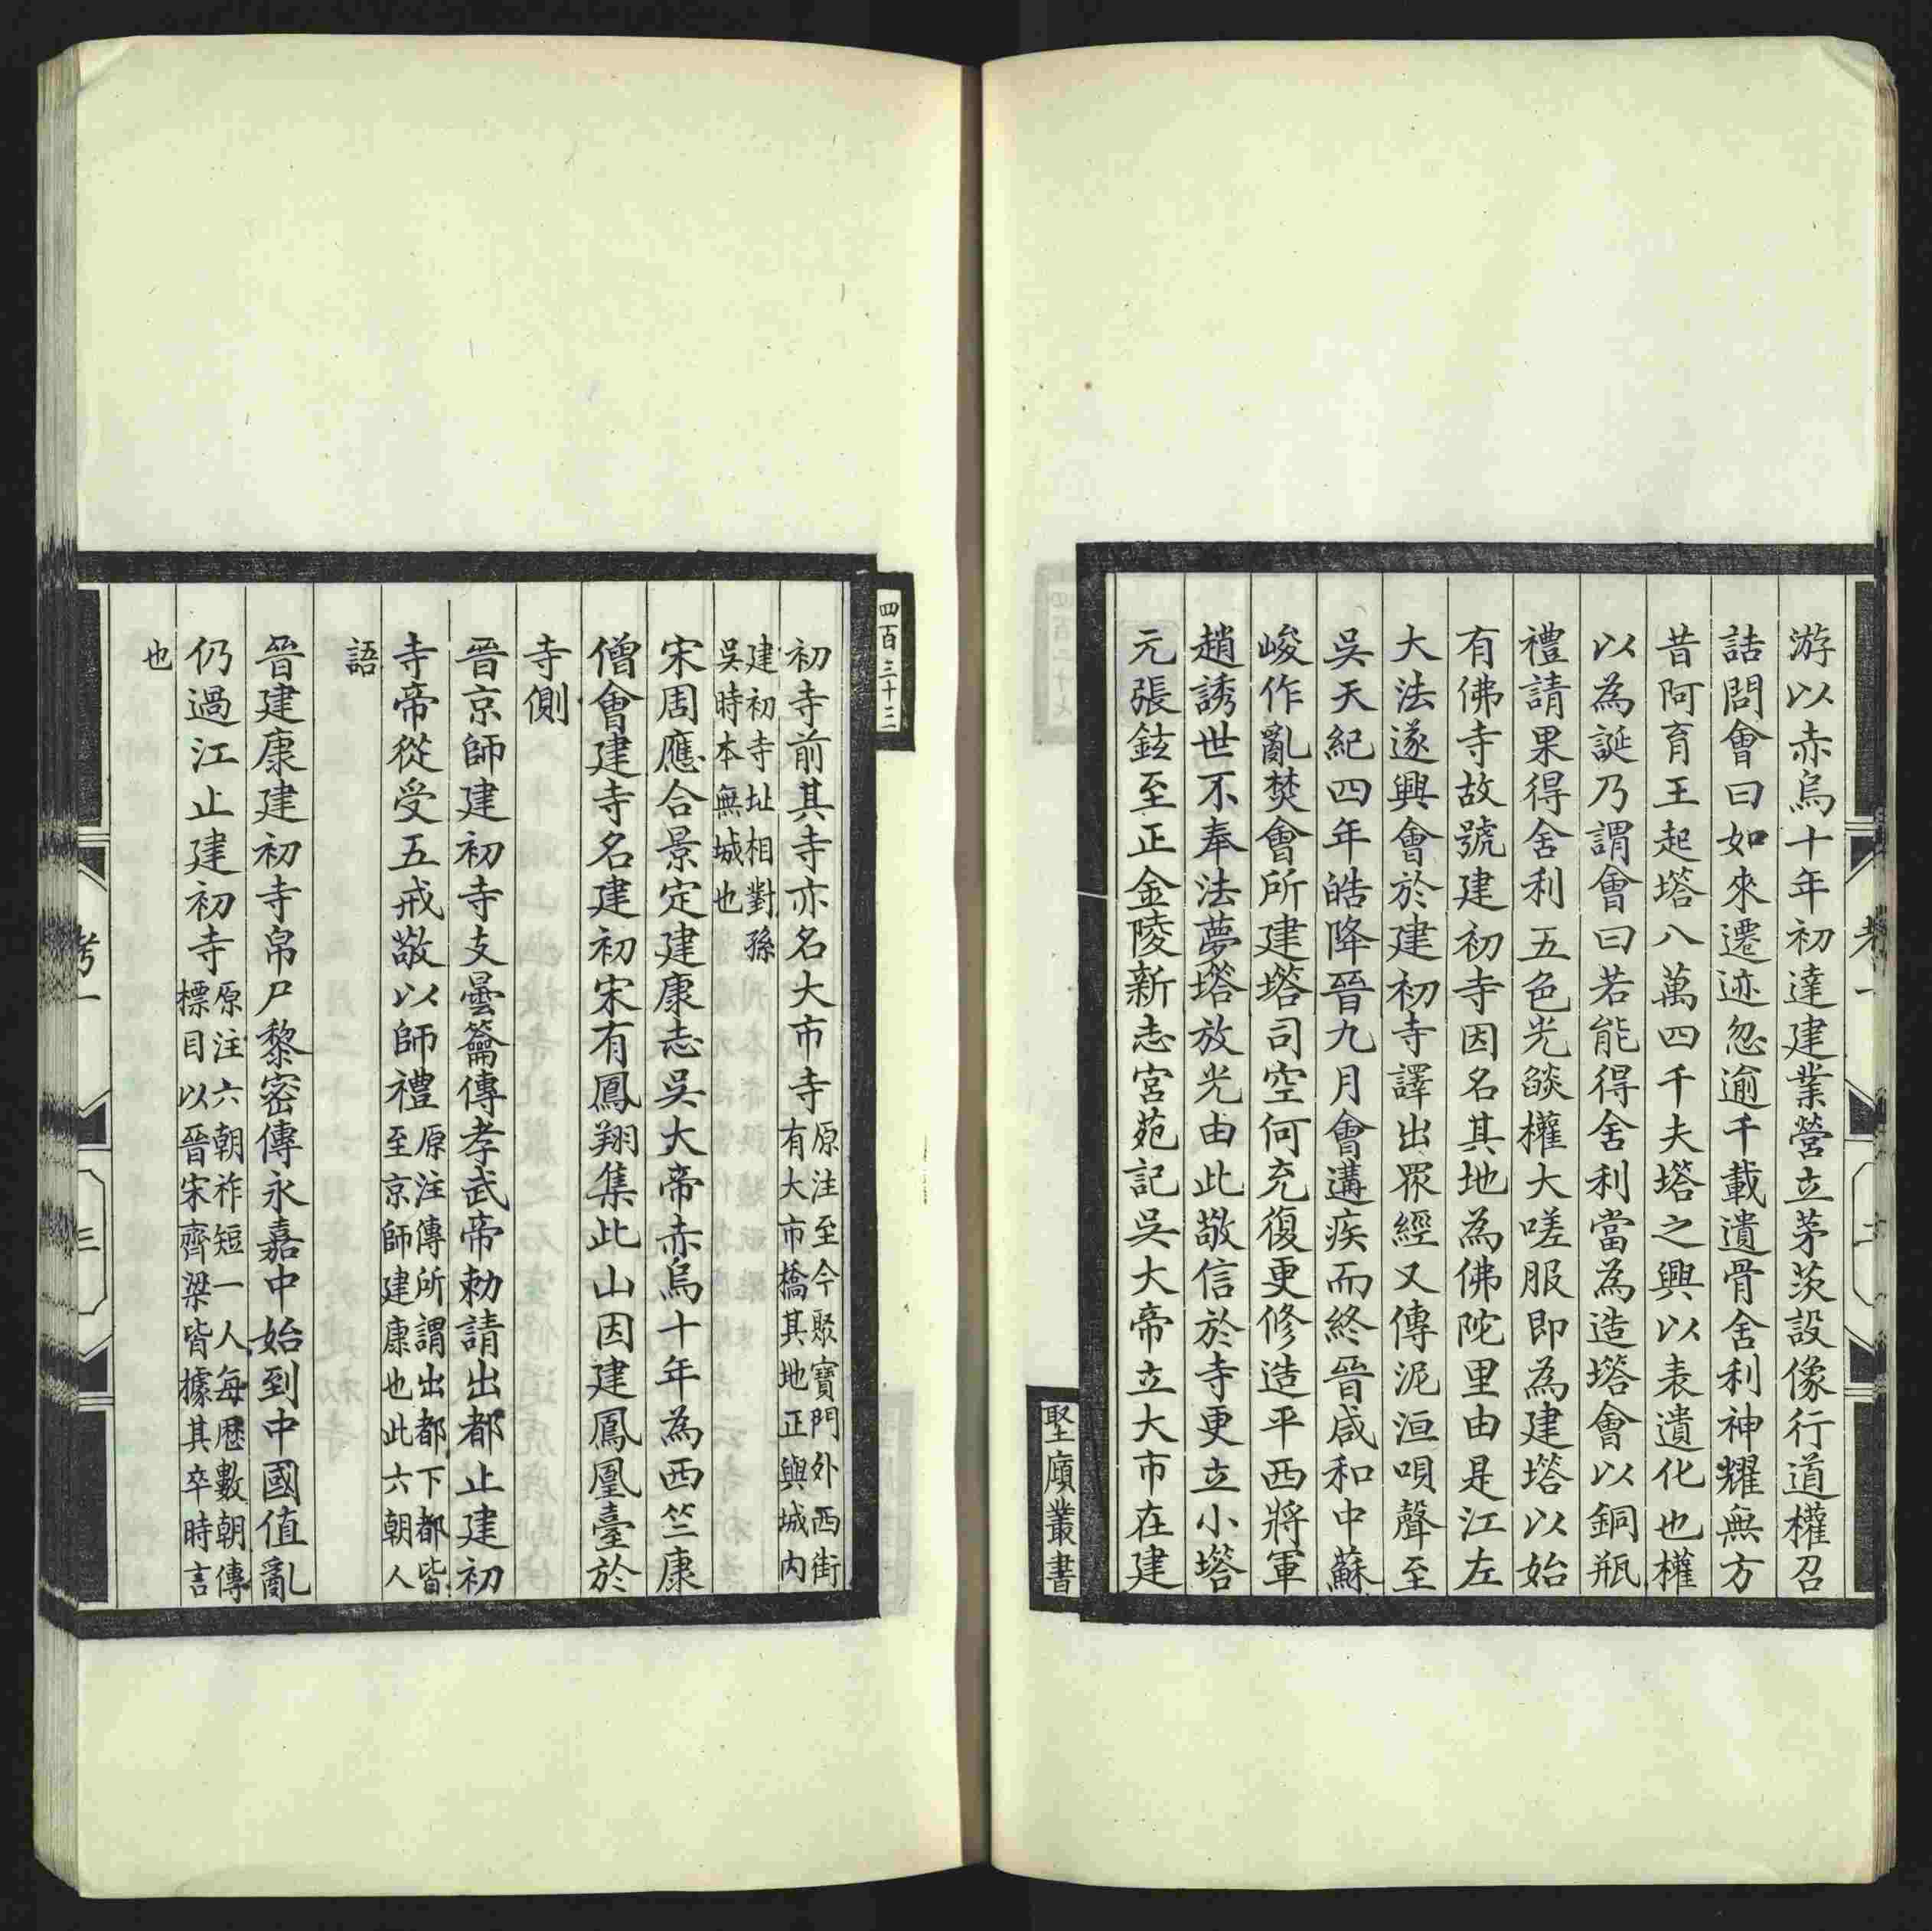 游以赤烏十年初達建業營立茅茨設像行道權召
詰問會曰如來遷迹忽逾千載遺骨舍利神耀無方
昔阿育王起塔八萬四千夫塔之興以表遺化也權
以為誕乃謂會曰若能得舍利當為造塔會以銅瓶
禮請果得舍利五色光燄權大嗟服即為建塔以始
有佛寺故號建初寺因名其地為佛陀里由是江左
大法遂興會於建初寺譯出眾經又傳泥洹唄聲至
吳天紀四年皓降晉九月會遘疾而終晉咸和中蘇
峻作亂焚會所建塔司空何充復更修造平西將軍
趙誘世不奉法夢塔放光由此敬信於寺更立小塔
元張鉉至正金陵新志宮苑記吳大帝立大市在建
堅廎叢書
四百三十三
初寺前其寺亦名大市寺
原注至今聚寶門外西街
有大市橋其地正與城內
建初寺址相對孫
吳時本無城也
宋周應合景定建康志吳大帝赤烏十年為西竺康
僧會建寺名建初宋有鳳翔集此山因建鳳凰臺於
寺側
晉京師建初寺支曇籥傳孝武帝勅請出都止建初
寺帝從受五戒敬以師禮
原注傳所謂出都下都皆
至京師建康也此六朝人
語
晉建康建初寺帛尸黎密傳永嘉中始到中國值亂
仍過江止建初寺
原注六朝祚短一人每歷數朝傳
標目以晉宋齊梁皆據其卒時言
也
考一
三